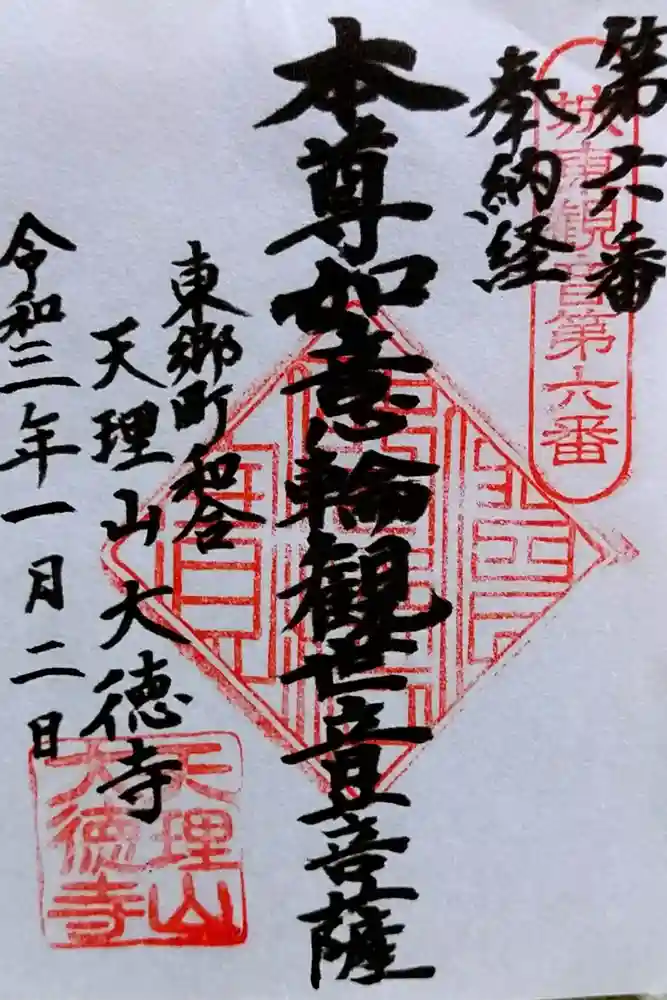 第六番
奉納経
城東観音第六番
本尊如意輪観世音菩薩
東郷町和合
天理山大徳寺
令和三年一月二日
天理山
大徳寺